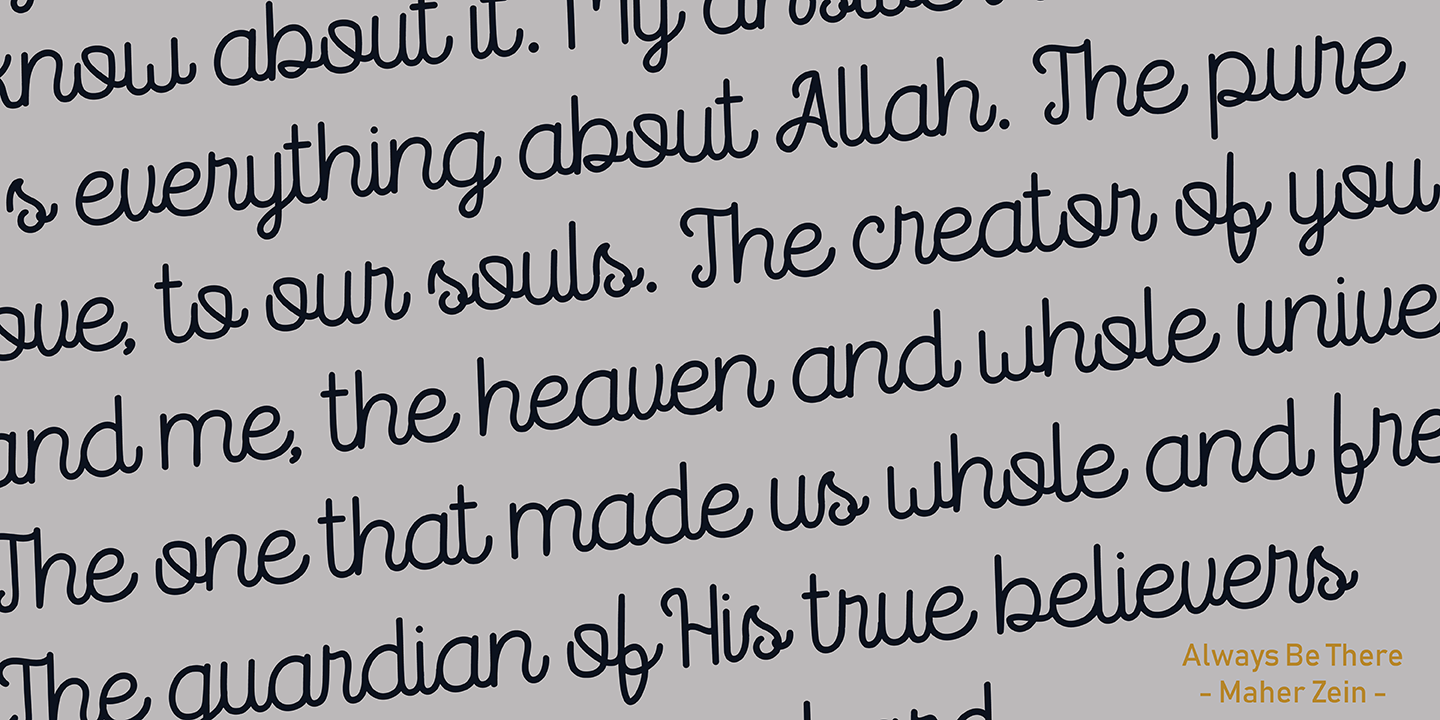 know about it. My answer
s everything about Allah. The pure
ove, to our souls. The creator of you
and me, the heaven and whole unive
The one that made us whole and fre
The guardian of His true believers
Always Be There
- Maher Zein -